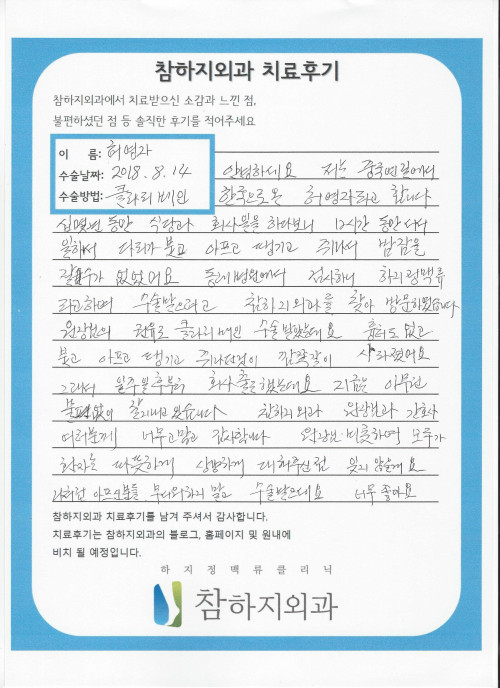 참하지외과 치료후기
참하지외과에서 치료받으신 소감과 느낀 점,
불편하셨던 점 등 솔직한 후기를 적어주세요
이 름: 허영자
수술날짜: 2018. 8. 14
수술방법: 클라리베인
안녕하세요 저는 중국연길에서
한국으로온 허영자라고 합니다
십몇년 동안 식당과 회사일을 하다보니 12시간 동안 서서
일해서 다리가 붓고 아프고 땡기고 쥐나서 밤잠을
잘수가 없었어요 동네병원에서 검사하니 하지정맥류
라고하며 수술받으라고 참하지외과를 찾아 방문하였습니다
원장님의 권유로 클라리베인 수술 받았는데요 흉터도 없고
붓고 아프고 땡기고 쥐나던것이 깜쪽같이 사라졌어요
그래서 일주일후부터 회사출근했는데요 지금은 아무런
불편없이 잘지내고 있습니다 참하지외과 원장님과 간호사
여러분께 너무고맙고 감사합니다 원장님 비롯하여 모두가
환자를 따뜻하게 상냥하게 대해주신점 잊지 않을게요
나처럼 아프신분들 두려워하지 말고 수술받으세요 너무 좋아요
참하지외과 치료후기를 남겨 주셔서 감사합니다.
치료후기는 참하지외과의 블로그, 홈페이지 및 원내에
비치 될 예정입니다.
하지정맥류클리닉
참하지외과